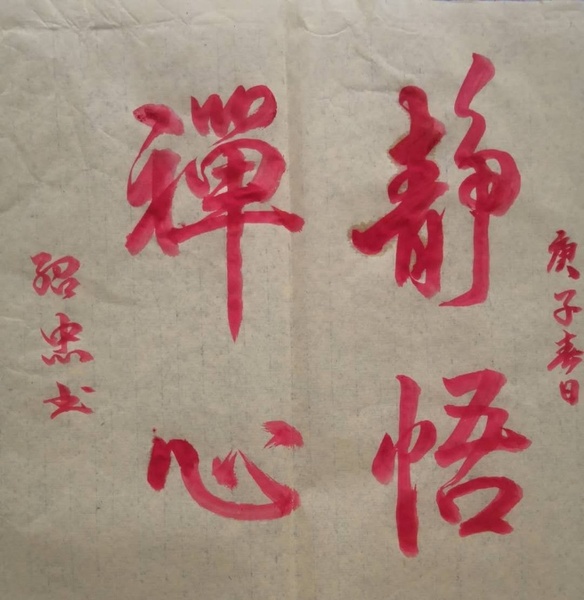 庚子春日
静悟
禪心
绍忠书